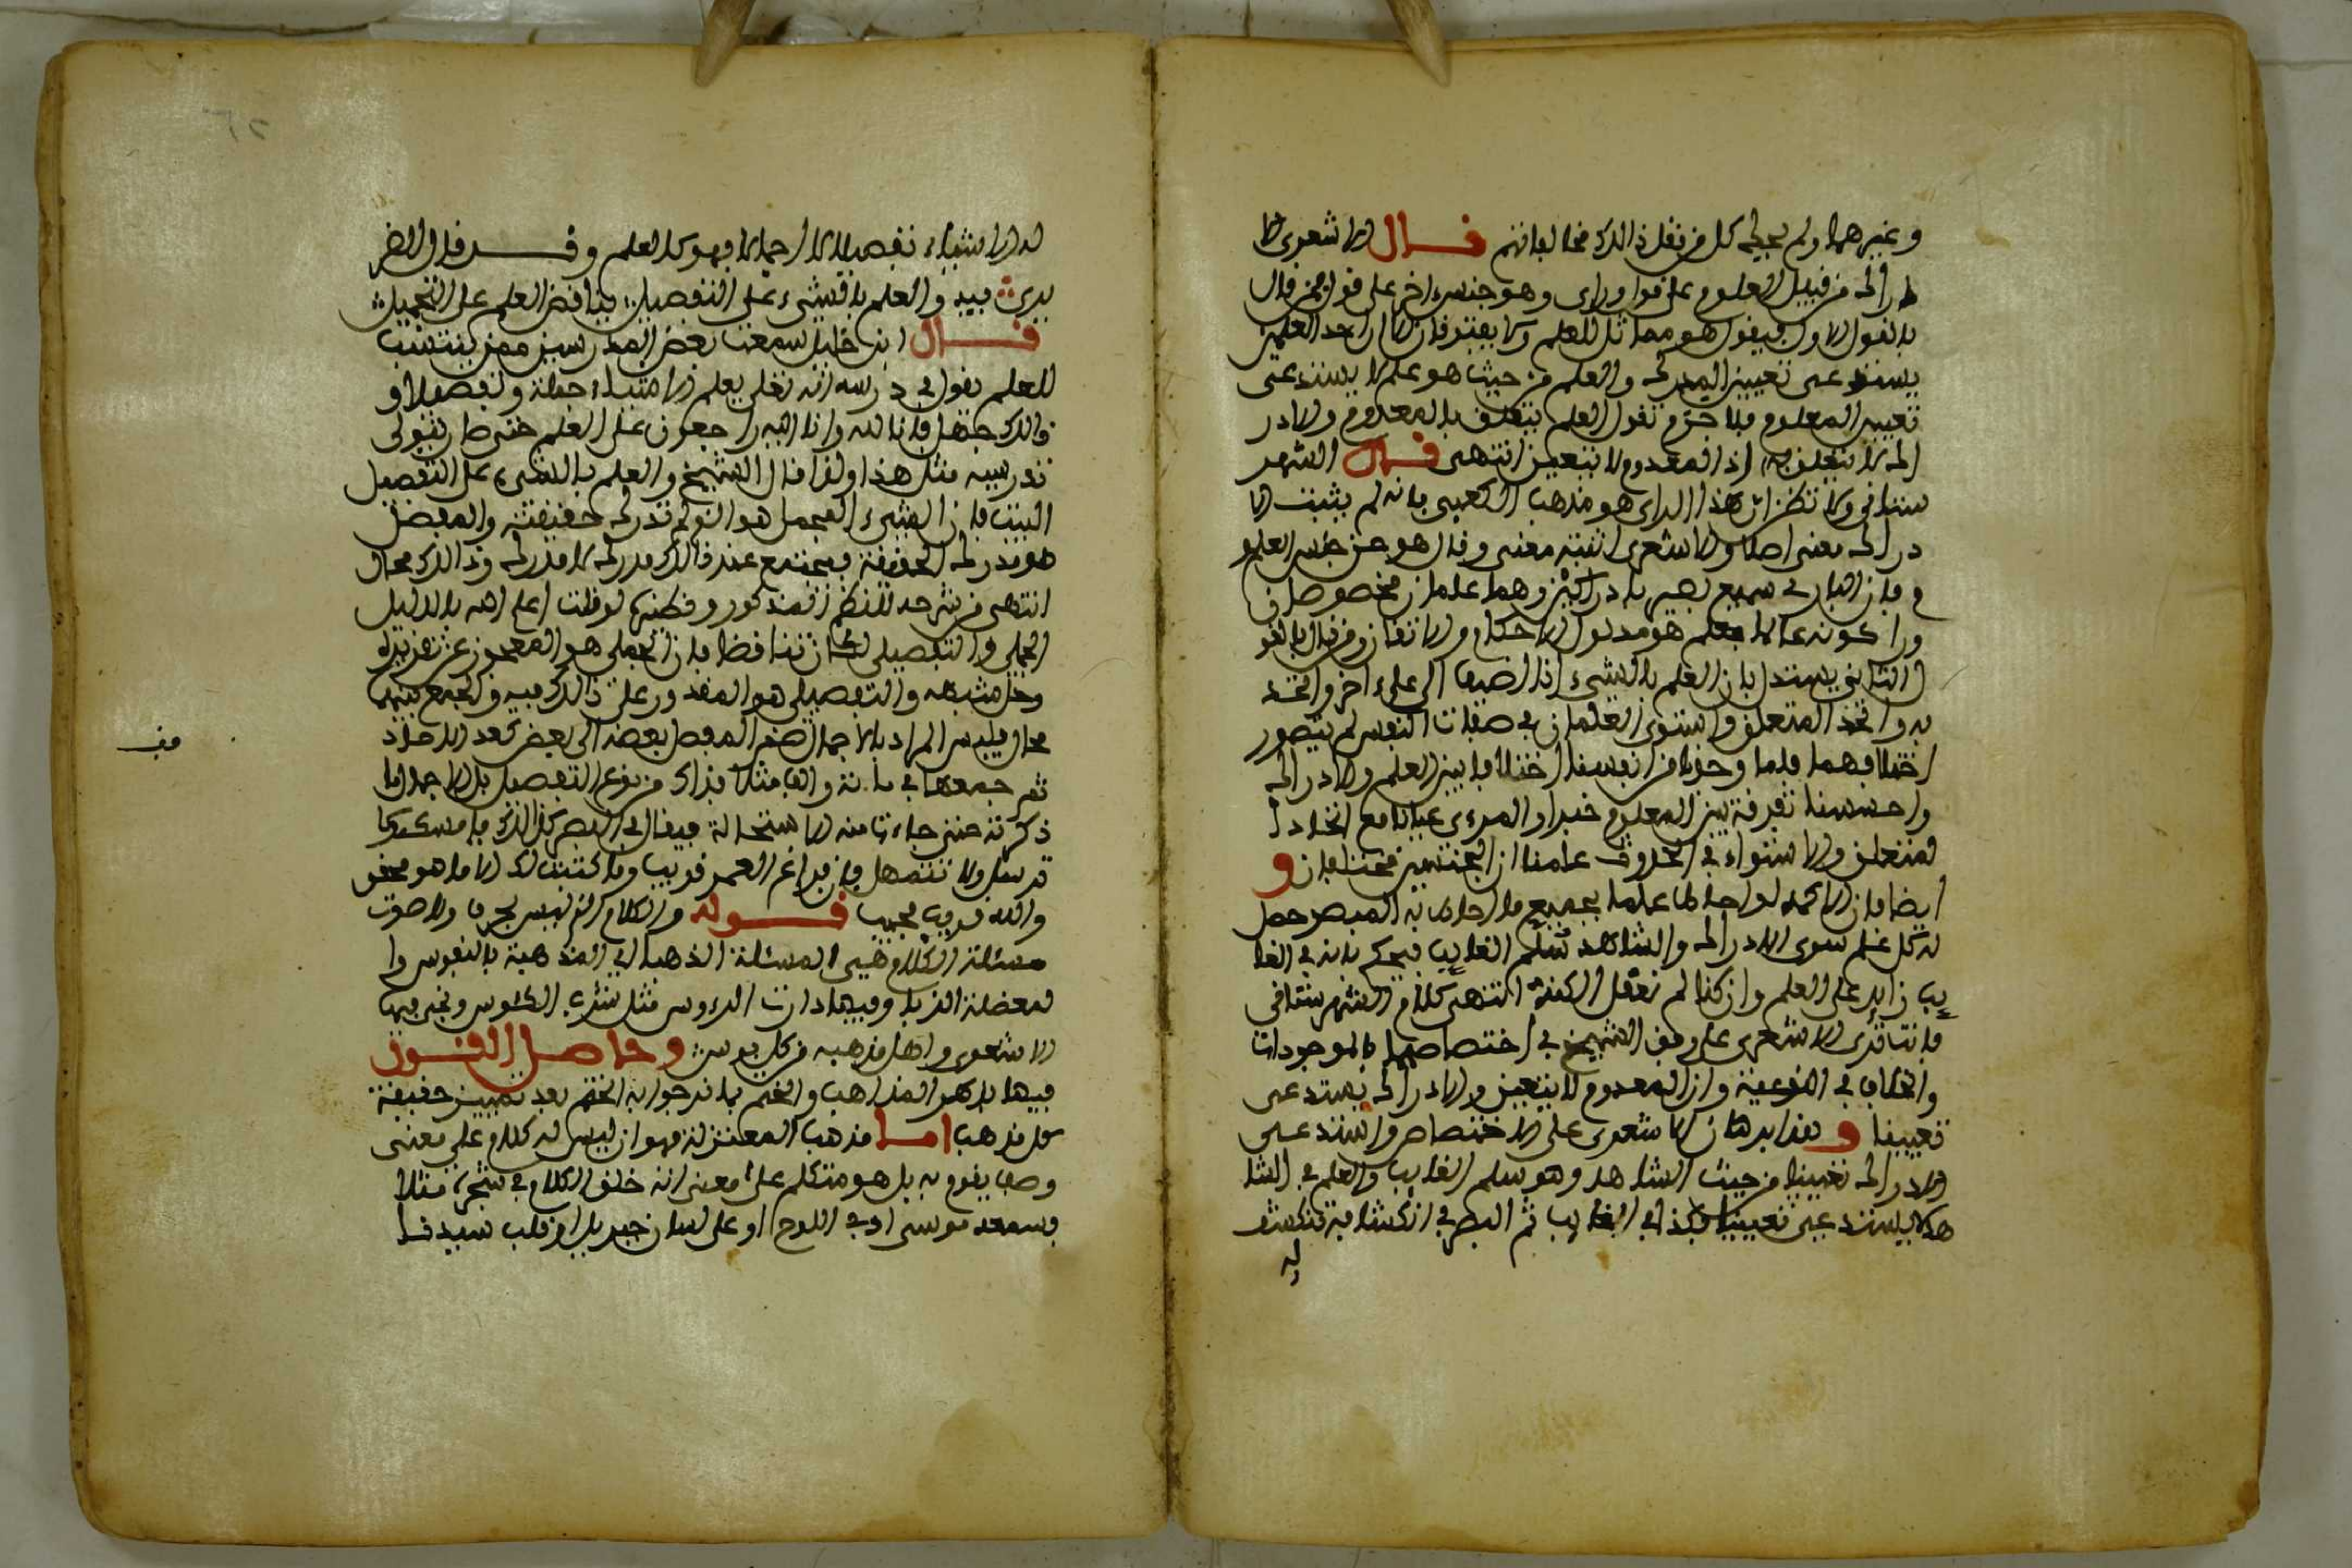 وغيرهما ولم يحط كل من نقل ذالك مخالفاتهم قال الاشعري الا
دراك من قبيل العلوم على قول وراى وهو جنس اخر على قول فمن قال
بالقول الاول فيقول هو مماثل للعلم ولا يفترفان الا ان احد العلمين
يستدعى تعيين المدرك والعلم من حيث هو علم لا يستدعى
تعيين المعلوم فلا جرم نقول العلم يتعلق بالمعدوم والادر
اك لا يتعلق به اذ المعدوم لا يتعين انتهى قال الشهر
ستانى ولا تظنن ان هذا الراى هو مذهب الكعبى فانه لم يثبت الا
دراك معنى اصلا والاشعرى اثبته معنى وقال هو من جنس العلو
م فان البارى سميع بصير بادراكين وهما علمان مخصوصان
وراء كونه عالما بعلم هو مدلول الاحكام والاتقان ومن قال بالقو
ل الثانى يستدل بان العلم بالشىء اذا اضيف الى علم اخر واتحد
به واتحد المتعلق واستوى العلمان فى صفات النفس لم يتصور
اختلافهما فلما وجدنا من انفسنا اختلافا بين العلم والادراك
واحسسنا تفرقة بين المعلوم خبرا والمرءى عيانا مع اتحاد ا
لمتعلق والاستواء فى الحدوث علمنا ان الجنسين مختلفان و
ايضا فان الاكمه لو احاط علما بجميع ما احاط به المبصر حصل
له كل علم سوى الادراك والشاهد سلم الغايب فيحكم بانه فى الغا
يب زايد على العلم وان كنا لم نعقل الكنه انتهى كلام الشهرستانى
فانت ترى الاشعرى على وفق الشيخ فى اختصاصهما بالموجودات
والخلاف فى النوعية وان المعدوم لا يتعين والادراك يستدعى
تعيينا و هذا برهان الاشعرى على الاختصاص واستدعى
الادراك تعيينا من حيث الشاهد وهو سلم الغايب والعلم فى الشا
هد لا يستدعى تعيينا فكذا فى الغايب ثم البصر فى انكشافه تنكشف
له
له الاشياء تفصيلا لا اجمالا فهو كالعلم وقد قال الضر
ير فيه والعلم بالشىء على التفصيل يناقض العلم على التجميل
قال ابن خليل سمعت بعض المدرسين ممن ينتسب
للعلم يقول فى درسه انه تعلى يعلم الاشياء جملة وتفصيلا و
ذالك جهل فانا لله وانا اليه راجعون على العلم حتى صار يتولى
تدريسه مثل هذا ولذا قال الشيخ والعلم بالشىء على التفصيل
البيت فان الشىء المجمل هو الذى لم تدرك حقيقته والمفصل
هو مدرك الحقيقة فيجتمع عند ذالك مدرك لا مدرك وذالك محال
انتهى من شرحه للنظم المذكور وفطنه لو قلت اعلم الله بالدليل
الجملى والتفصيلى لكان تناقضا فان الجملى هو المعجوز عن تقريره
وحل شبهه والتفصيلى هو المقدور على ذالك فيه والجمع بينهما
محال فليس المراد بالاجمال ضم المفصل بعضه الى بعض كعد الاحاد
ثم جمعها فى مائة والف مثلا فذاك من نوع التفصيل بل الاجمال ما
ذكرته حتى جاءنا منه الاستحالة فيقال فى البصر كذالك فامسكه كما
قد سهل ولا تتمهل فان فراغ العمر قريب وما كتبت لك الا ما هو محقق
والله قريب مجيب قوله والكلام الذى ليس بحرف ولا صوت
مسئلة الكلام هى المسئلة الذهبا اى المذهبة بالنفوس وا
لمعضلة الذيل وفيها دارت الرءوس مثل شرب الكئوس ونجى فيها
الاشعرى واهل مذهبه من كل بوس وحاصل القول
فيها باكثر المذاهب والختم بما ترجوا به الختم بعد تمييز حقيقة
كل مذهب اما مذهب المعتزلة فهو ان ليس له كلام على معنى
وصف يقوم به بل هو متكلم على معنى انه خلق الكلام فى شجرة مثلا
فسمعه موسى او فى اللوح او على لسان جبريل او قلب سيدنا
قف